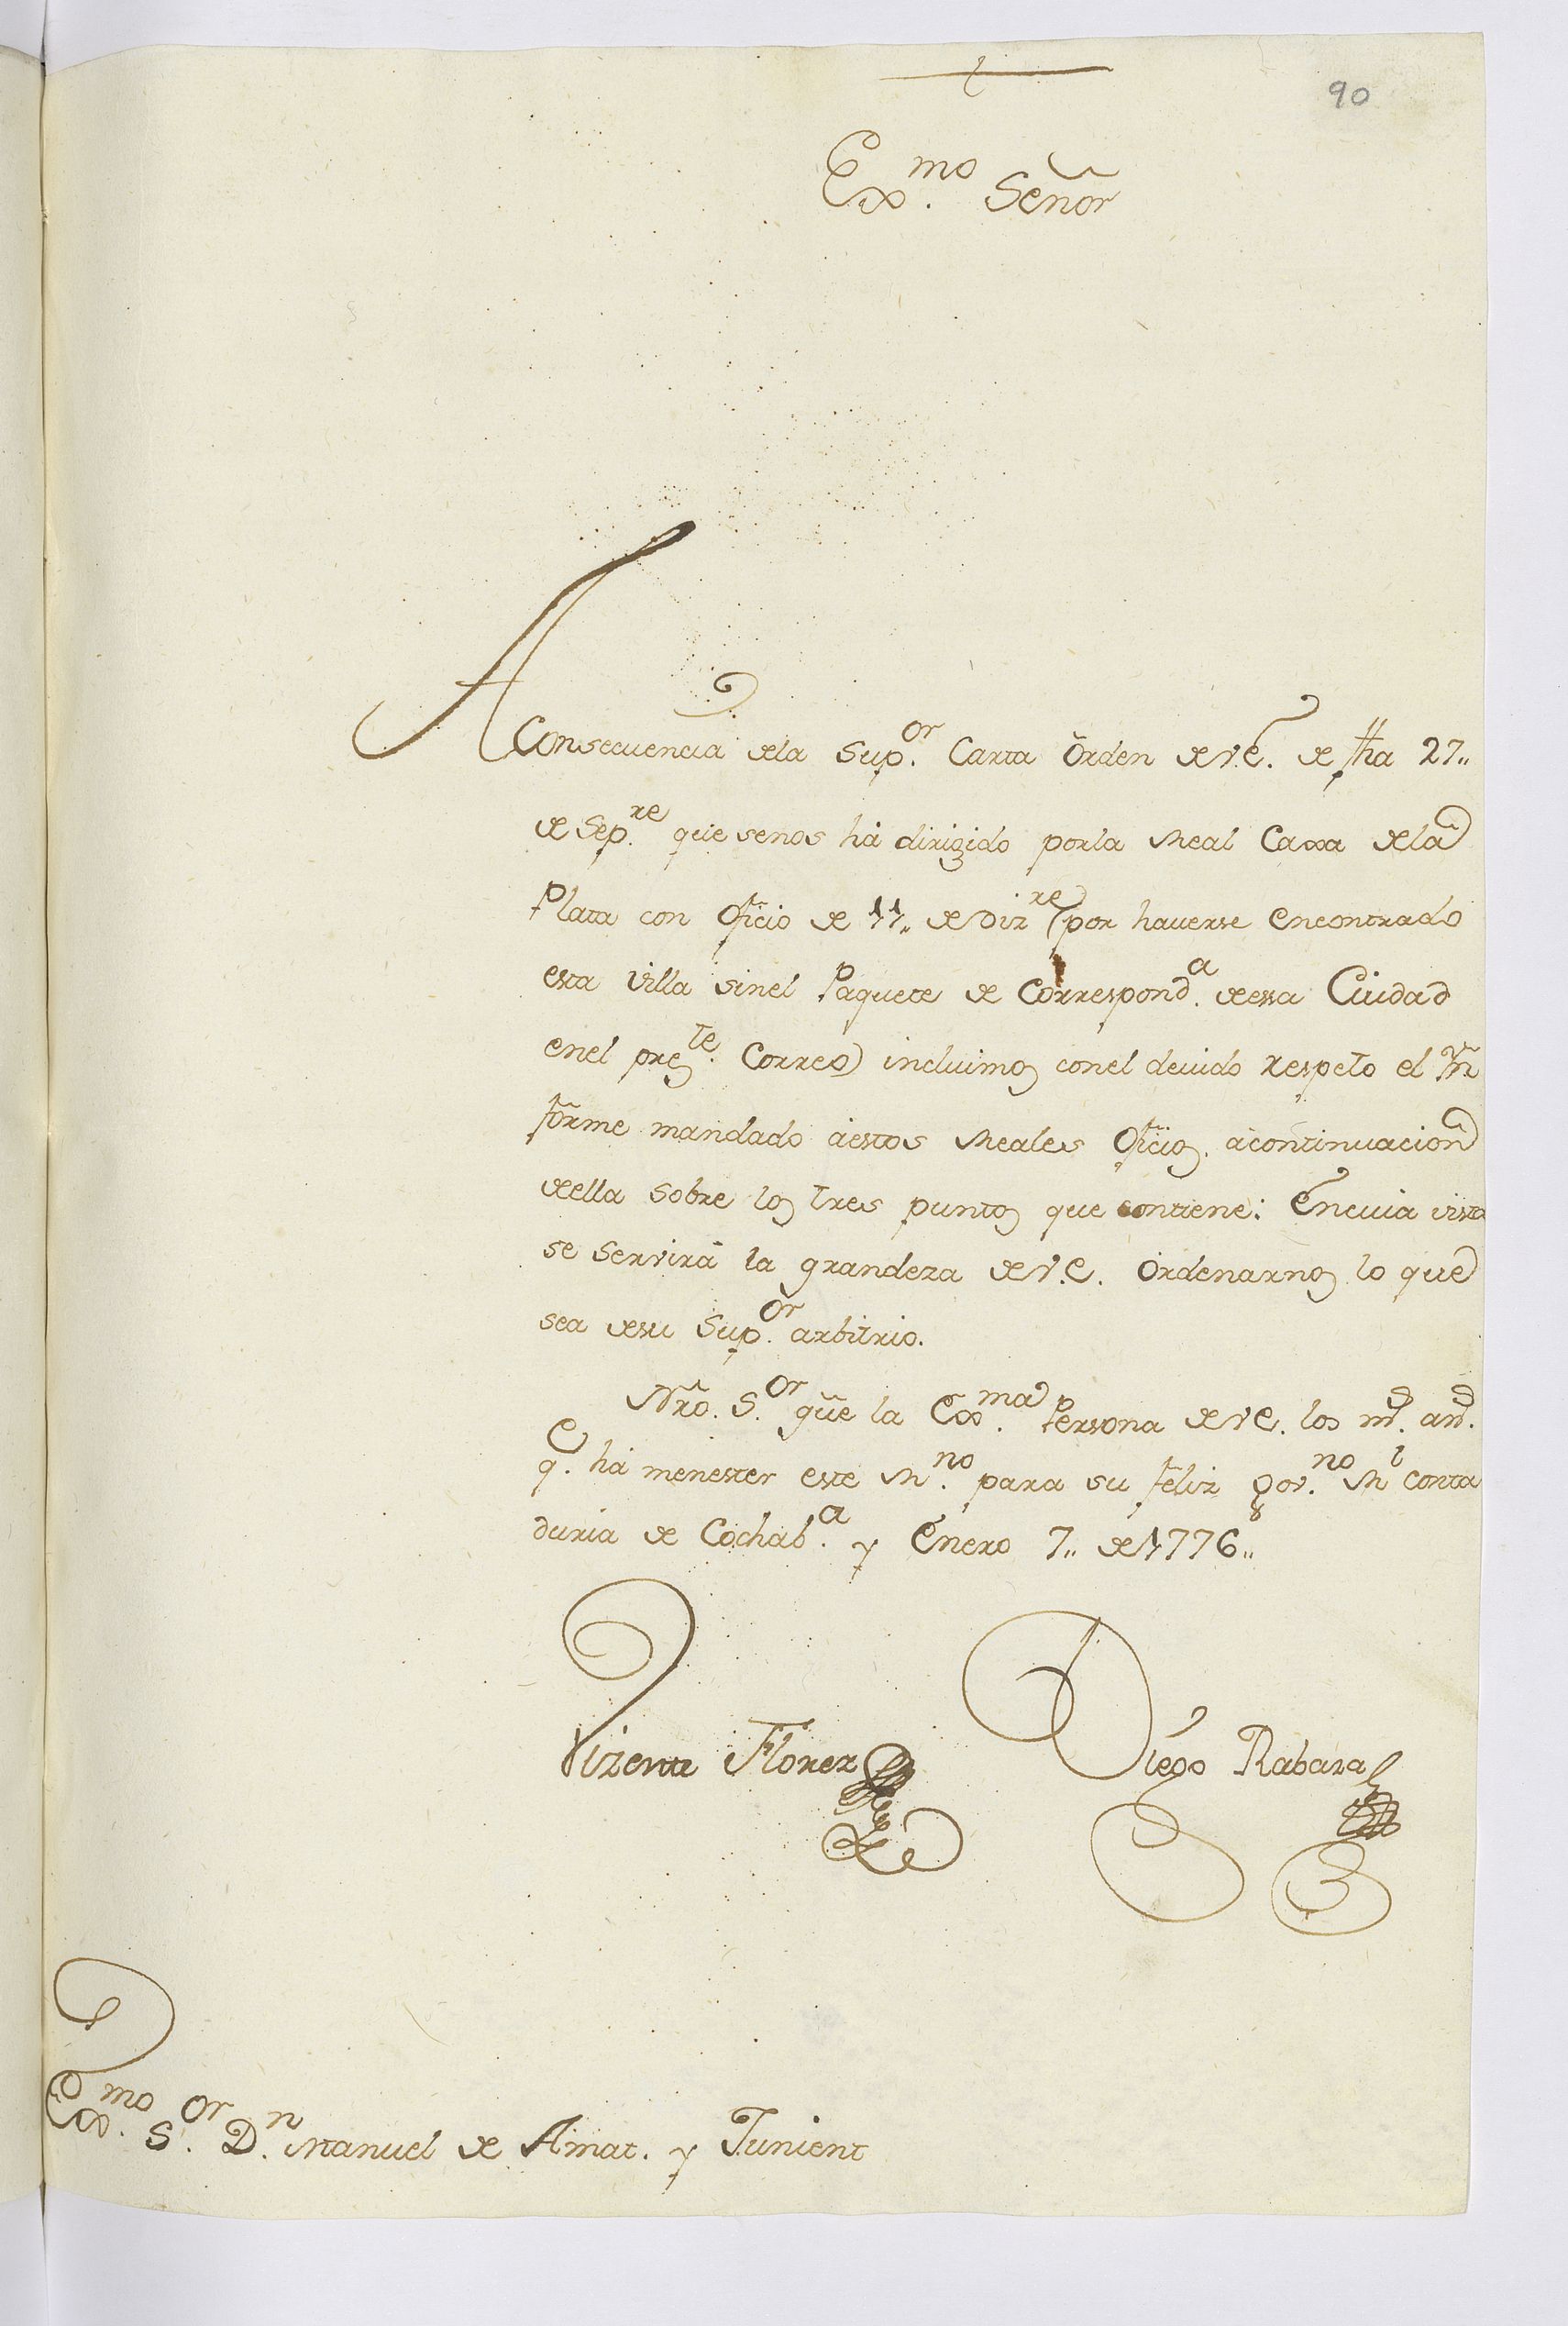 90
Exmo. Señor
A Consecuencia dela Supor. Carta Orden de V.E. de fha 27,,
de Sepre. que senos há dirigido porla Real Caxa dela
Plata con Oficio de 11,, de Dizre (por haverse encontrado
esta Villa sinel Paquete de Corresponda. deesa Ciudad
enel preste. Correo) incluimos conel devido respeto el Yn
forme mandado áestos Reales Oficios. ácontinuacion
deella sobre los tres puntos que contiene: Encuia vista
se servirá la grandeza de V.E. Ordenarnos lo que
sea desu Supor. arbitrio.
Nro. Sor. gue la Exma. Persona de VE. los ms. as.
qe. há menester este Rno. para su feliz govno. Rl Conta
duria de Cochaba. y Enero 7,, de 1776,,
Vizente Florez
Diego Rabaza
Exmo. Sor. Dn. Manuel de Amat. y Junient